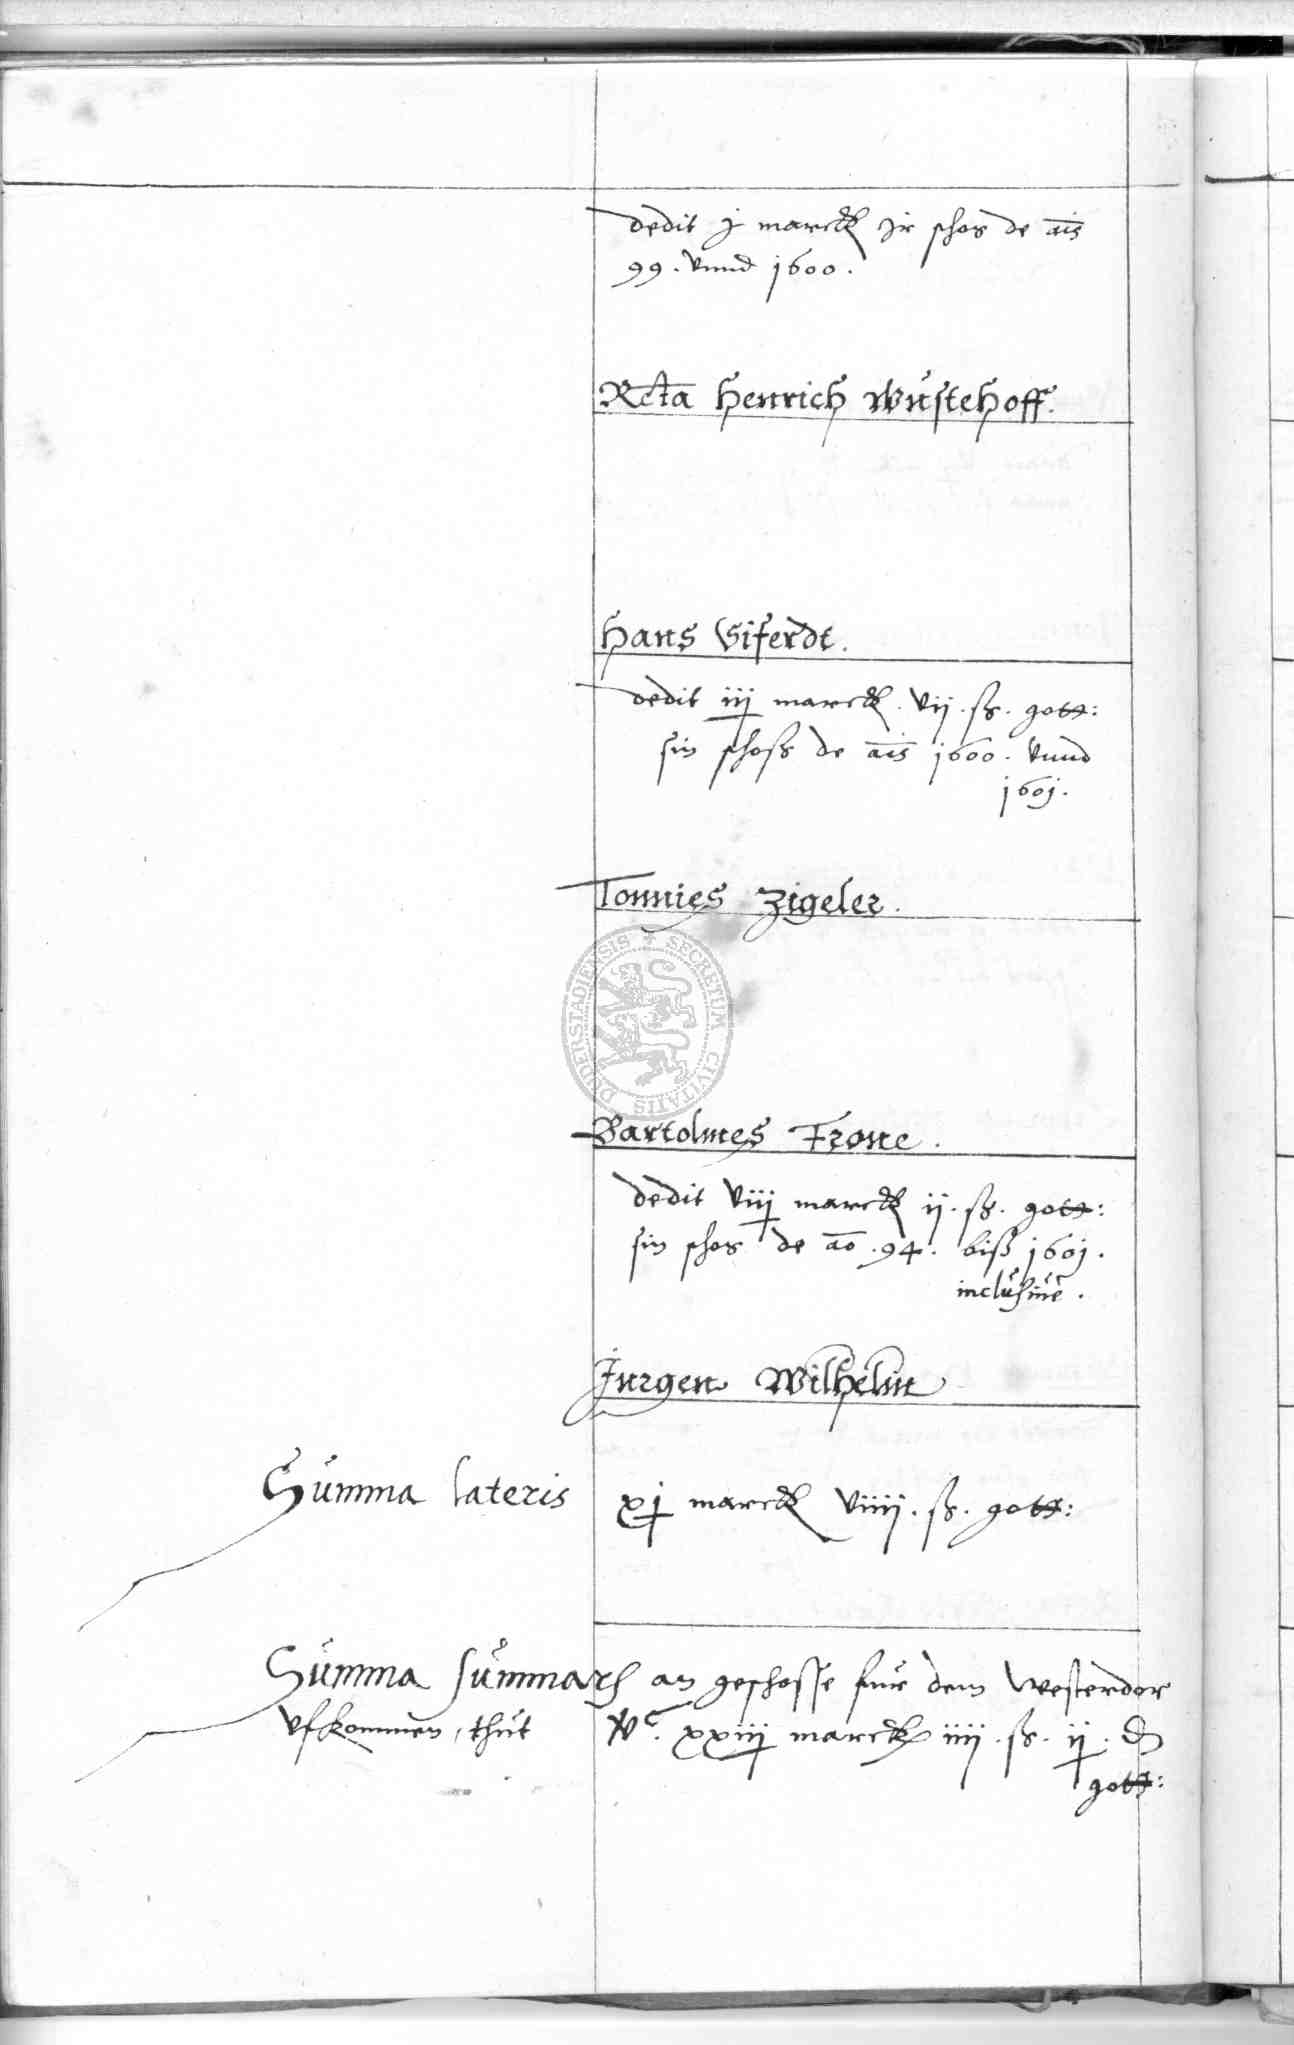 dedit j marck ir schos de ais
99. vnnd 1600.
Rcta Henrich Wustehoff.
Hans Siferdt.
dedit iij marck. vij. ß. gott:
sin schoss de ais 1600. vnnd
1601.
Tonnies Zigeler.
SECRETUM CIVITATIS DUDERSTADIENSIS
Bartolmes Frone.
dedit viij marck ij. ß. gott:
sin schos de ao .94. biß 1601.
inclusiue.
Jurgen Wilhelm
Summa lateris xj marck viiij. ß. gott:
Summa summarum an geschosse fur dem Westerdor
vfkommen, thut xxiij marck iiij. ß. ij. d
gott: